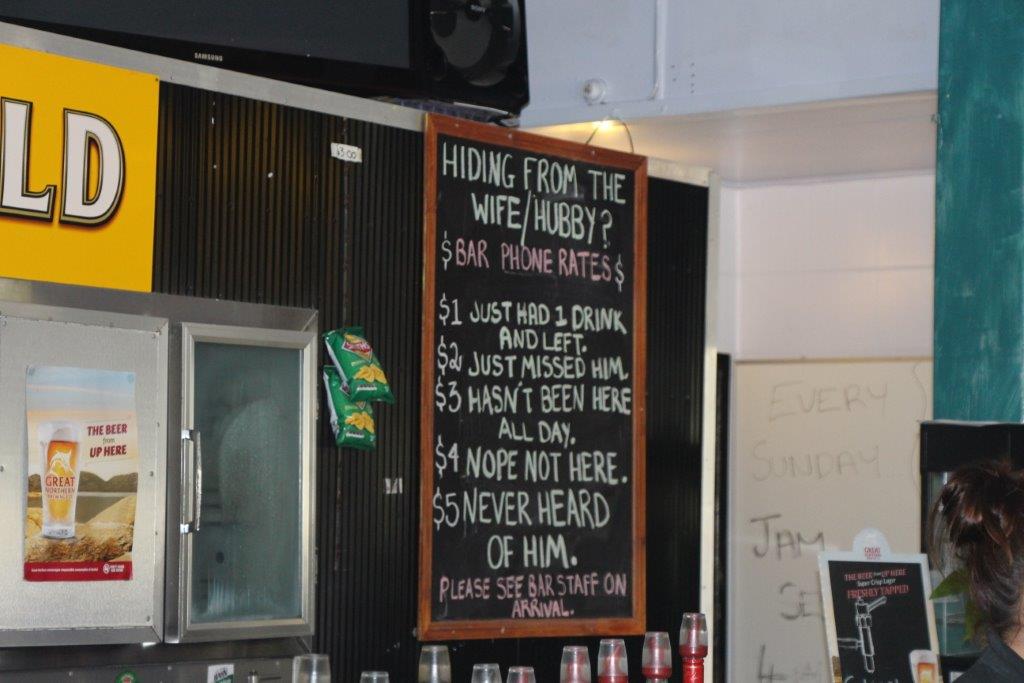 SAMSUNG
LD
$3.00
HIDING FROM THE
WIFE/HUBBY?
$BAR PHONE RATES$
$1 JUST HAD 1 DRINK
AND LEFT.
$2 JUST MISSED HIM.
$3 HASN'T BEEN HERE
ALL DAY.
$4 NOPE NOT HERE.
$5 NEVER HEARD
OF HIM.
PLEASE SEE BAR STAFF ON
ARRIVAL.
THE BEER
from
UP HERE
GREAT
NORTHERN
BREWING CO
EVERY
SUNDAY
JAM
GREAT
NORTHERN
THE BEER from UP HERE
Super Crisp Lager
FRESHLY TAPPED